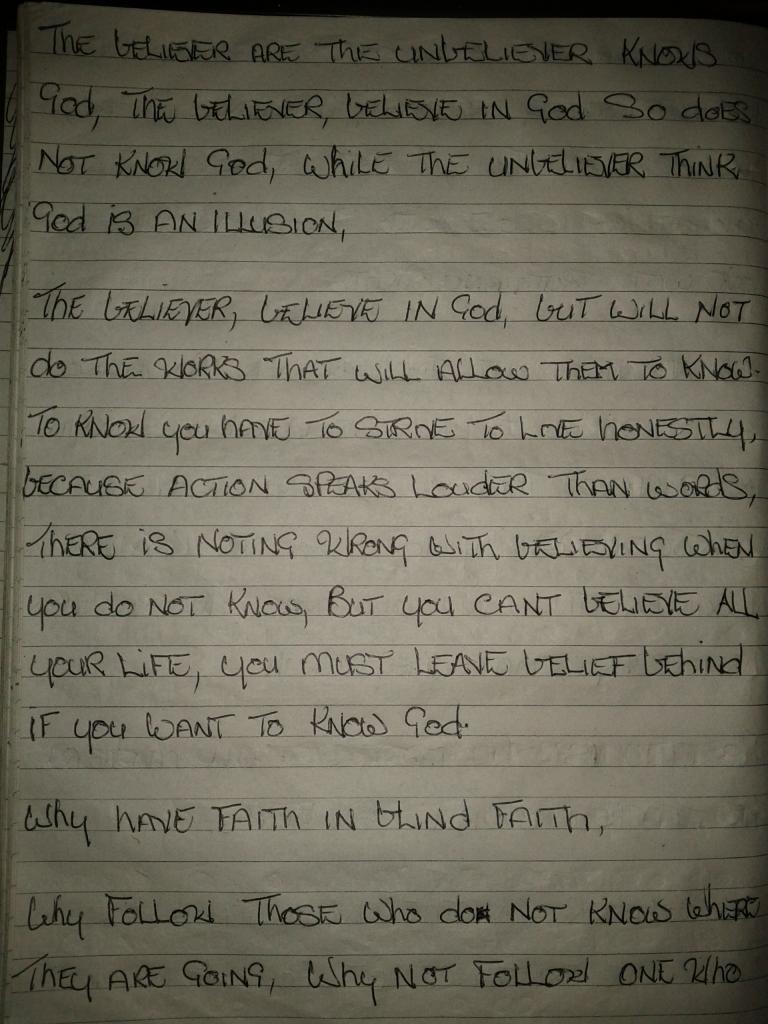 THE bELIEVER ARE THE UNbELIEVER KNOWS
God, THE bELIEVER, bELIEVE IN God So doES
NOT KNOW God, WhILE THE UNbELIEVER THINK
God IS AN ILLUSION,
THE bELIEVER, bELIEVE IN God, buT WILL NOT
do THE WORKS THAT WILL ALLOW THEM TO KNOW.
TO KNOW you HAVE TO STRIVE TO LIVE HONESTLY,
bECAUSE ACTION SPEAKS LOUDER THAN WORdS,
THERE IS NOTING WRONG WITH bELIEVING WHEN
you do NOT KNOW, BUT you CANT bELIEVE ALL
youR LIFE, you MUST LEAVE bELIEF bEhINd
IF you WANT TO KNOW God.
Why HAVE FAITH IN bLINd FAITH,
Why FOLLOW THOSE Who do NOT KNOW WHERE
THEY ARE GOING, Why NOT FOLLOW ONE Who